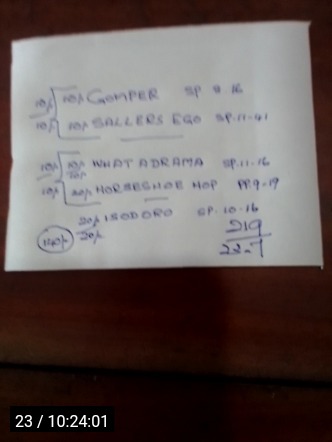 10p 10p GOMPER SP 9.16
10p 10p SALLERS EGO SP.11-41
10p 10p WHATADRAMA SP.11.16
10p 20p HORSESHOE HOP PP.9-19
20p ISODORO SP.10-16
20p
219
23-7
23 / 10:24:01